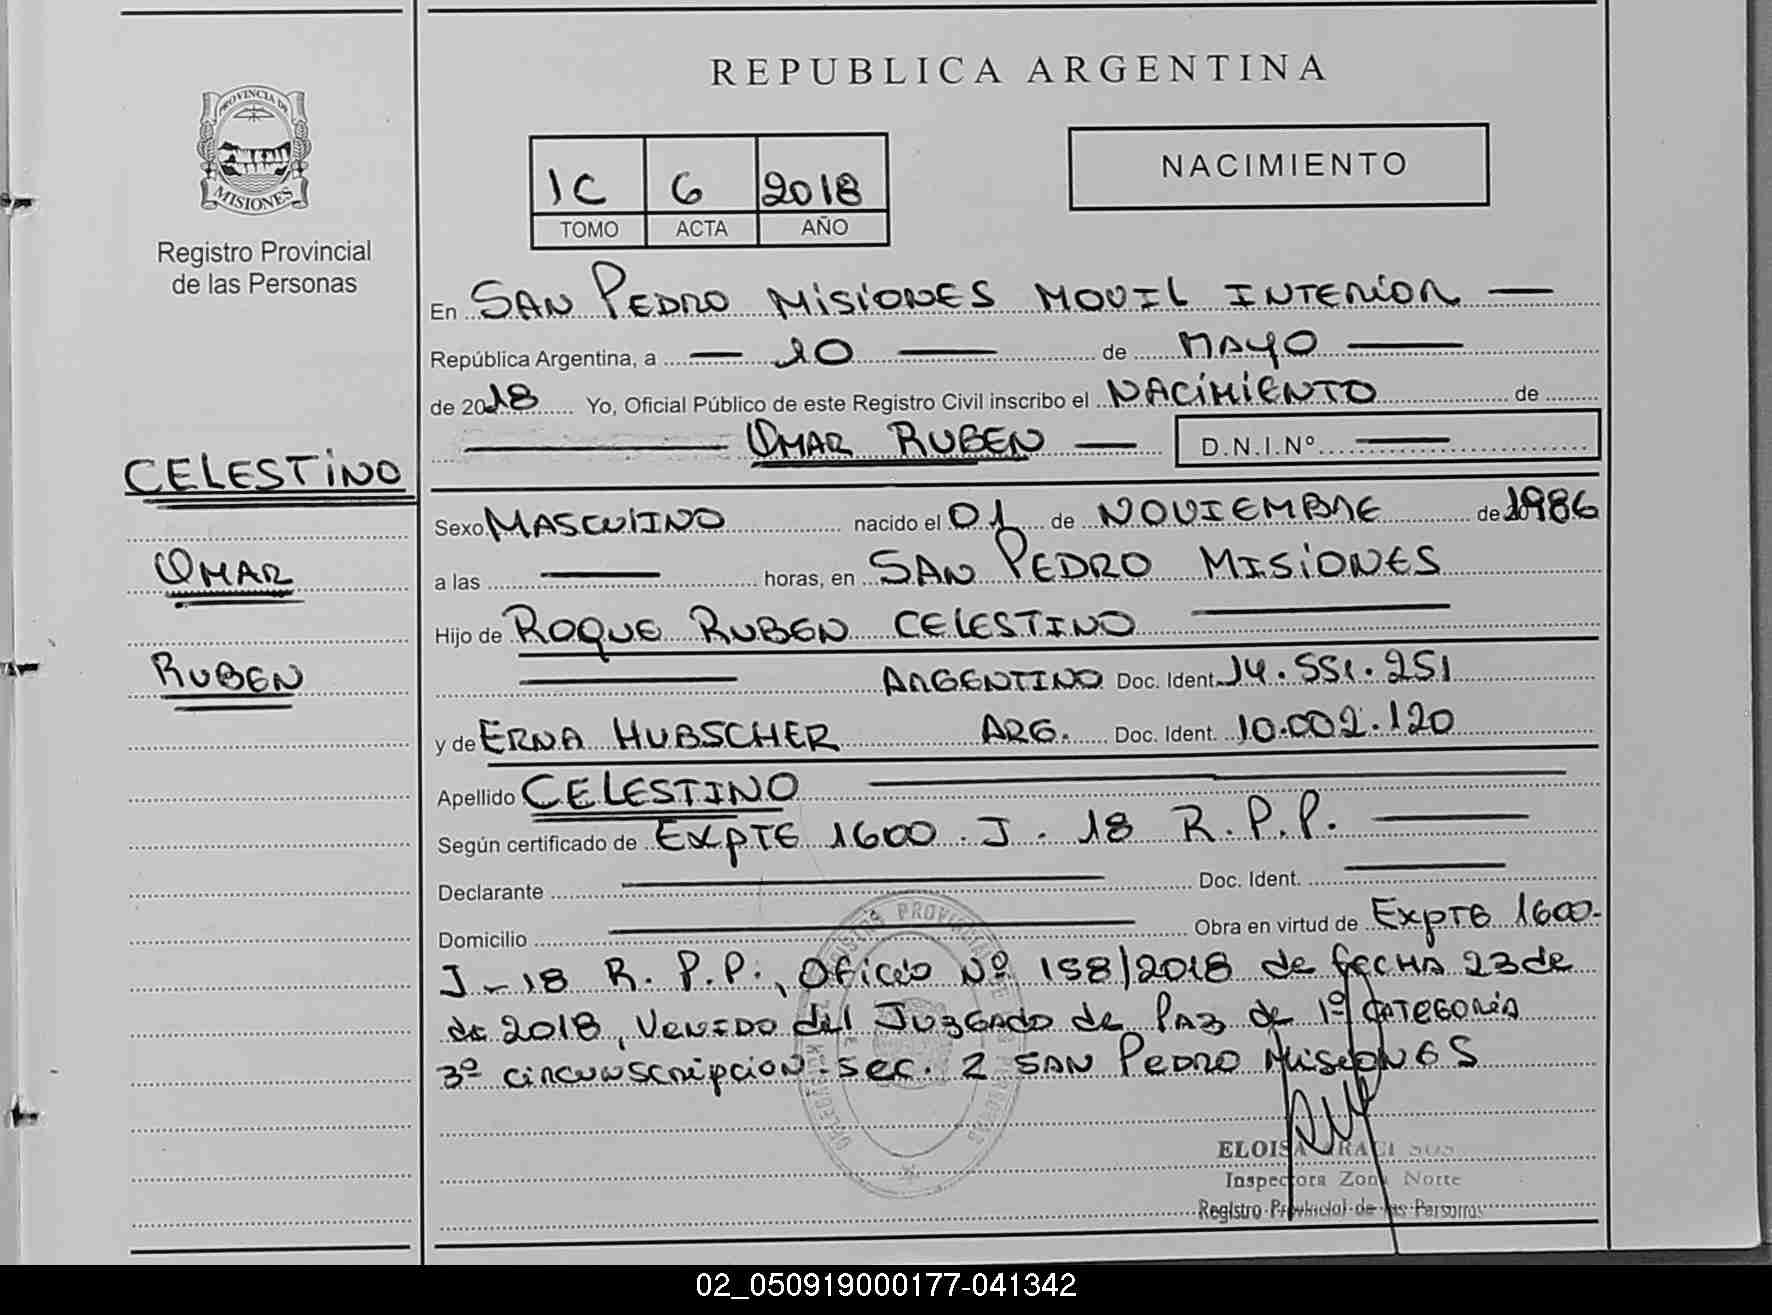 REPUBLICA ARGENTINA
PROVINCIA DE
MISIONES
Registro Provincial
de las Personas
1C 6 2018
TOMO ACTA AÑO
NACIMIENTO
En SAN PEDRO MISIONES MOVIL INTERIOR
República Argentina, a 10 de MAYO
de 2018 Yo, Oficial Público de este Registro Civil inscribo el NACIMIENTO de
OMAR RUBEN D.N.I.Nº
CELESTINO
OMAR
RUBEN
Sexo MASCULINO nacido el 01 de NOVIEMBRE de 1986
a las horas, en SAN PEDRO MISIONES
Hijo de ROQUE RUBEN CELESTINO
ARGENTINO Doc. Ident. 14.551.251
y de ERNA HUBSCHER ARG. Doc. Ident. 10.002.120
Apellido CELESTINO
Según certificado de EXPTE 1600.J.18 R.P.P.
Declarante Doc. Ident.
Domicilio Obra en virtud de EXPTE 1600-
J-18 R.P.P., Oficio Nº 158/2018 de fecha 23 de
de 2018, VENIDO del JUZGADO de PAZ de 1º CATEGORIA
3º circunscripcion. sec. 2 SAN PEDRO MISIONES
ELOISA
Inspectora Zona Norte
Registro Provincial de las Personas
02_050919000177-041342